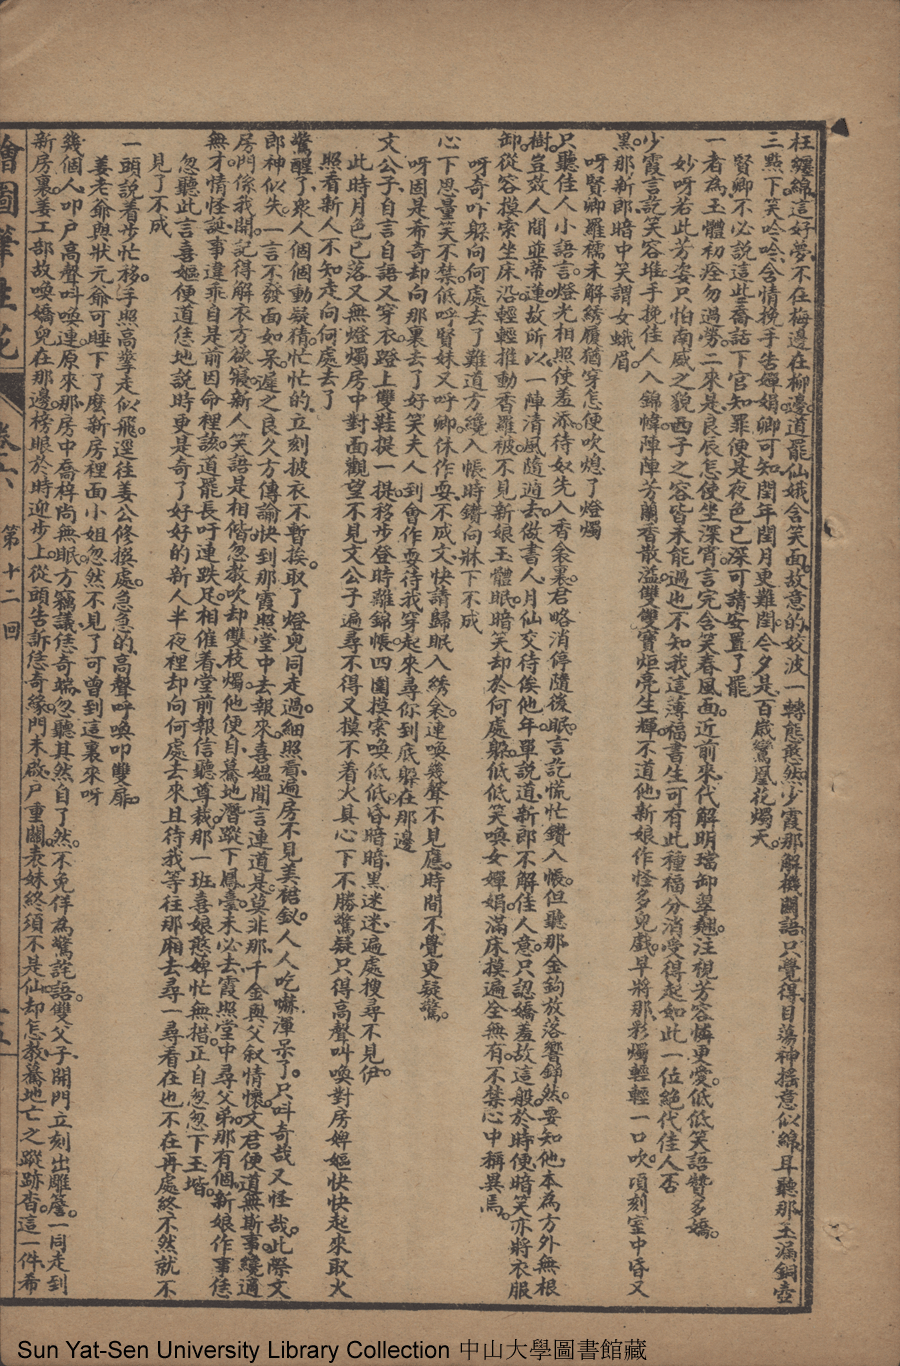 枉纏綿這好夢不在梅邊在柳邊道罷仙娥含笑面故意的姣波一轉態憨然少霞那解機關語只覺得目蕩神搖意似綿耳聽那玉漏銅壺
三點下笑吟吟含情挽手告嬋娟卿可知閏年閏月更難閏今夕是百歲鸞凰花燭天
賢卿不必說這些喬話下官知罪便是夜色已深可請安置了罷
一者為玉體初痊勿過勞二來是良辰怎使坐深宵言完含笑春風面近前來代解明璫卸翠翹注視芳容憐更愛低低笑語贊多嬌
妙呀若此芳姿只怕南威之貌西子之容皆未能過也不知我這薄福書生可有此種福分消受得起如此一位絕代佳人否
少霞言訖笑容堆手挽佳人入錦幃陣陣芳蘭香散溢雙雙寶炬亮生輝不道他新娘作怪多兒戲早將那彩燭輕輕一口吹頃刻室中昏又
黑那新郎暗中笑謂女蛾眉
呀賢卿羅襦未解綉履猶穿怎便吹熄了燈燭
只聽佳人小語言燈光相照使羞添待奴先入香衾裏君略消停隨後眠言訖慌忙鑽入帳但聽那金鉤放落響錚然要知他本為方外無根
樹豈效人間並蒂蓮故所以一陣清風隨遁去做書人月仙交待俟他年單說道新郎不解佳人意只認嬌羞故這般於時便暗笑亦將衣服
卸從容摸索坐床沿輕輕推動香羅被不見新娘玉體眠暗笑却於何處躲低低笑喚女嬋娟滿床摸遍全無有不禁心中稱異焉
呀奇吓躲向何處去了難道方纔入帳時鑽向牀下不成
心下思量笑不禁低呼賢妹又呼卿休作耍不成文快請歸眠入綉衾連喚幾聲不見應時間不覺更疑驚
呀固是希奇却向那裏去了好笑夫人到會作耍待我穿起來尋你到底躲在那邊
文公子自言自語又穿衣蹬上雙鞋提一提移步登時離錦帳四圍摸索喚低低昏暗暗黑迷迷遍處搜尋不見伊
此時月色已落又無燈燭房中對面觀望不見文公子遍尋不得又摸不着火具心下不勝驚疑只得高聲叫喚對房婢嫗快快起來取火
照看新人不知走向何處去了
驚醒了衆人個個動疑猜忙忙的立刻披衣不暫挨取了燈兒同走過細照看遍房不見美裙釵人人吃嚇渾呆了只呌奇哉又怪哉此際文
郎神似失一言不發面如呆遲之良久方傳諭快到那霞照堂中去報來喜媪聞言連道是莫非那千金與父叙情懷文君便道無斯事纔適
房門係我関記得解衣方欲寢新人笑語是相偕忽教吹却雙枝燭他便自驀地潛蹤下鳳臺未必去霞照堂中尋父弟那有個新娘作事恁
無才情怪誕事違乖自是前因命裡該道罷長吁連跌足相催着堂前報信聽尊裁那一班喜娘憨婢忙無措正自怱怱下玉堦
忽聽此言喜嫗便道恁地説時更是奇了好好的新人半夜裡却向何處去來且待我等往那廂去尋一尋看在也不在再處終不然就不
見了不成
一頭説着步忙移手照高擎走似飛逕往姜公修撰處急急的高聲呼喚叩雙扉
姜老爺與狀元爺可睡下了麽新房裡面小姐忽然不見了可曾到這裏來呀
幾個人叩户高聲呌喚連原來那房中喬梓尚無眠方竊議恁奇端忽聽其然自了然不免佯為驚詫語雙父子開門立刻出雕簷一同走到
新房裏姜工部故喚嬌兒在那邊榜眼於時迎步上從頭告訴恁奇緣門未啟户重關表妹終須不是仙却怎教驀地亡之蹤跡杳這一件希
繪圖筆生花
卷六
第十二回
十五
Sun Yat-Sen University Library Collection 中山大學圖書館藏